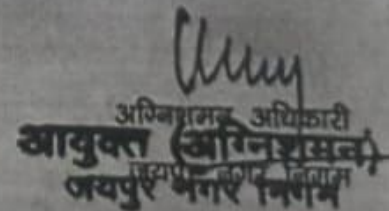 अग्निशमन अधिकारी
आयुक्त (अग्निशमन)
जयपुर नगर निगम
जयपुर नगर निगम